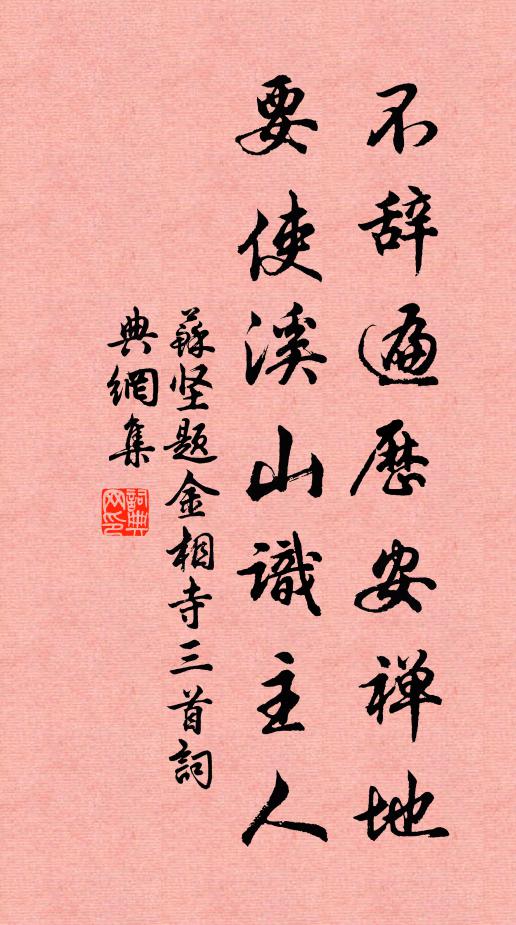 不辞遍历安禅地
要使溪山識主人
蘇坚题金相寺三首詞
典網集
詞典网印